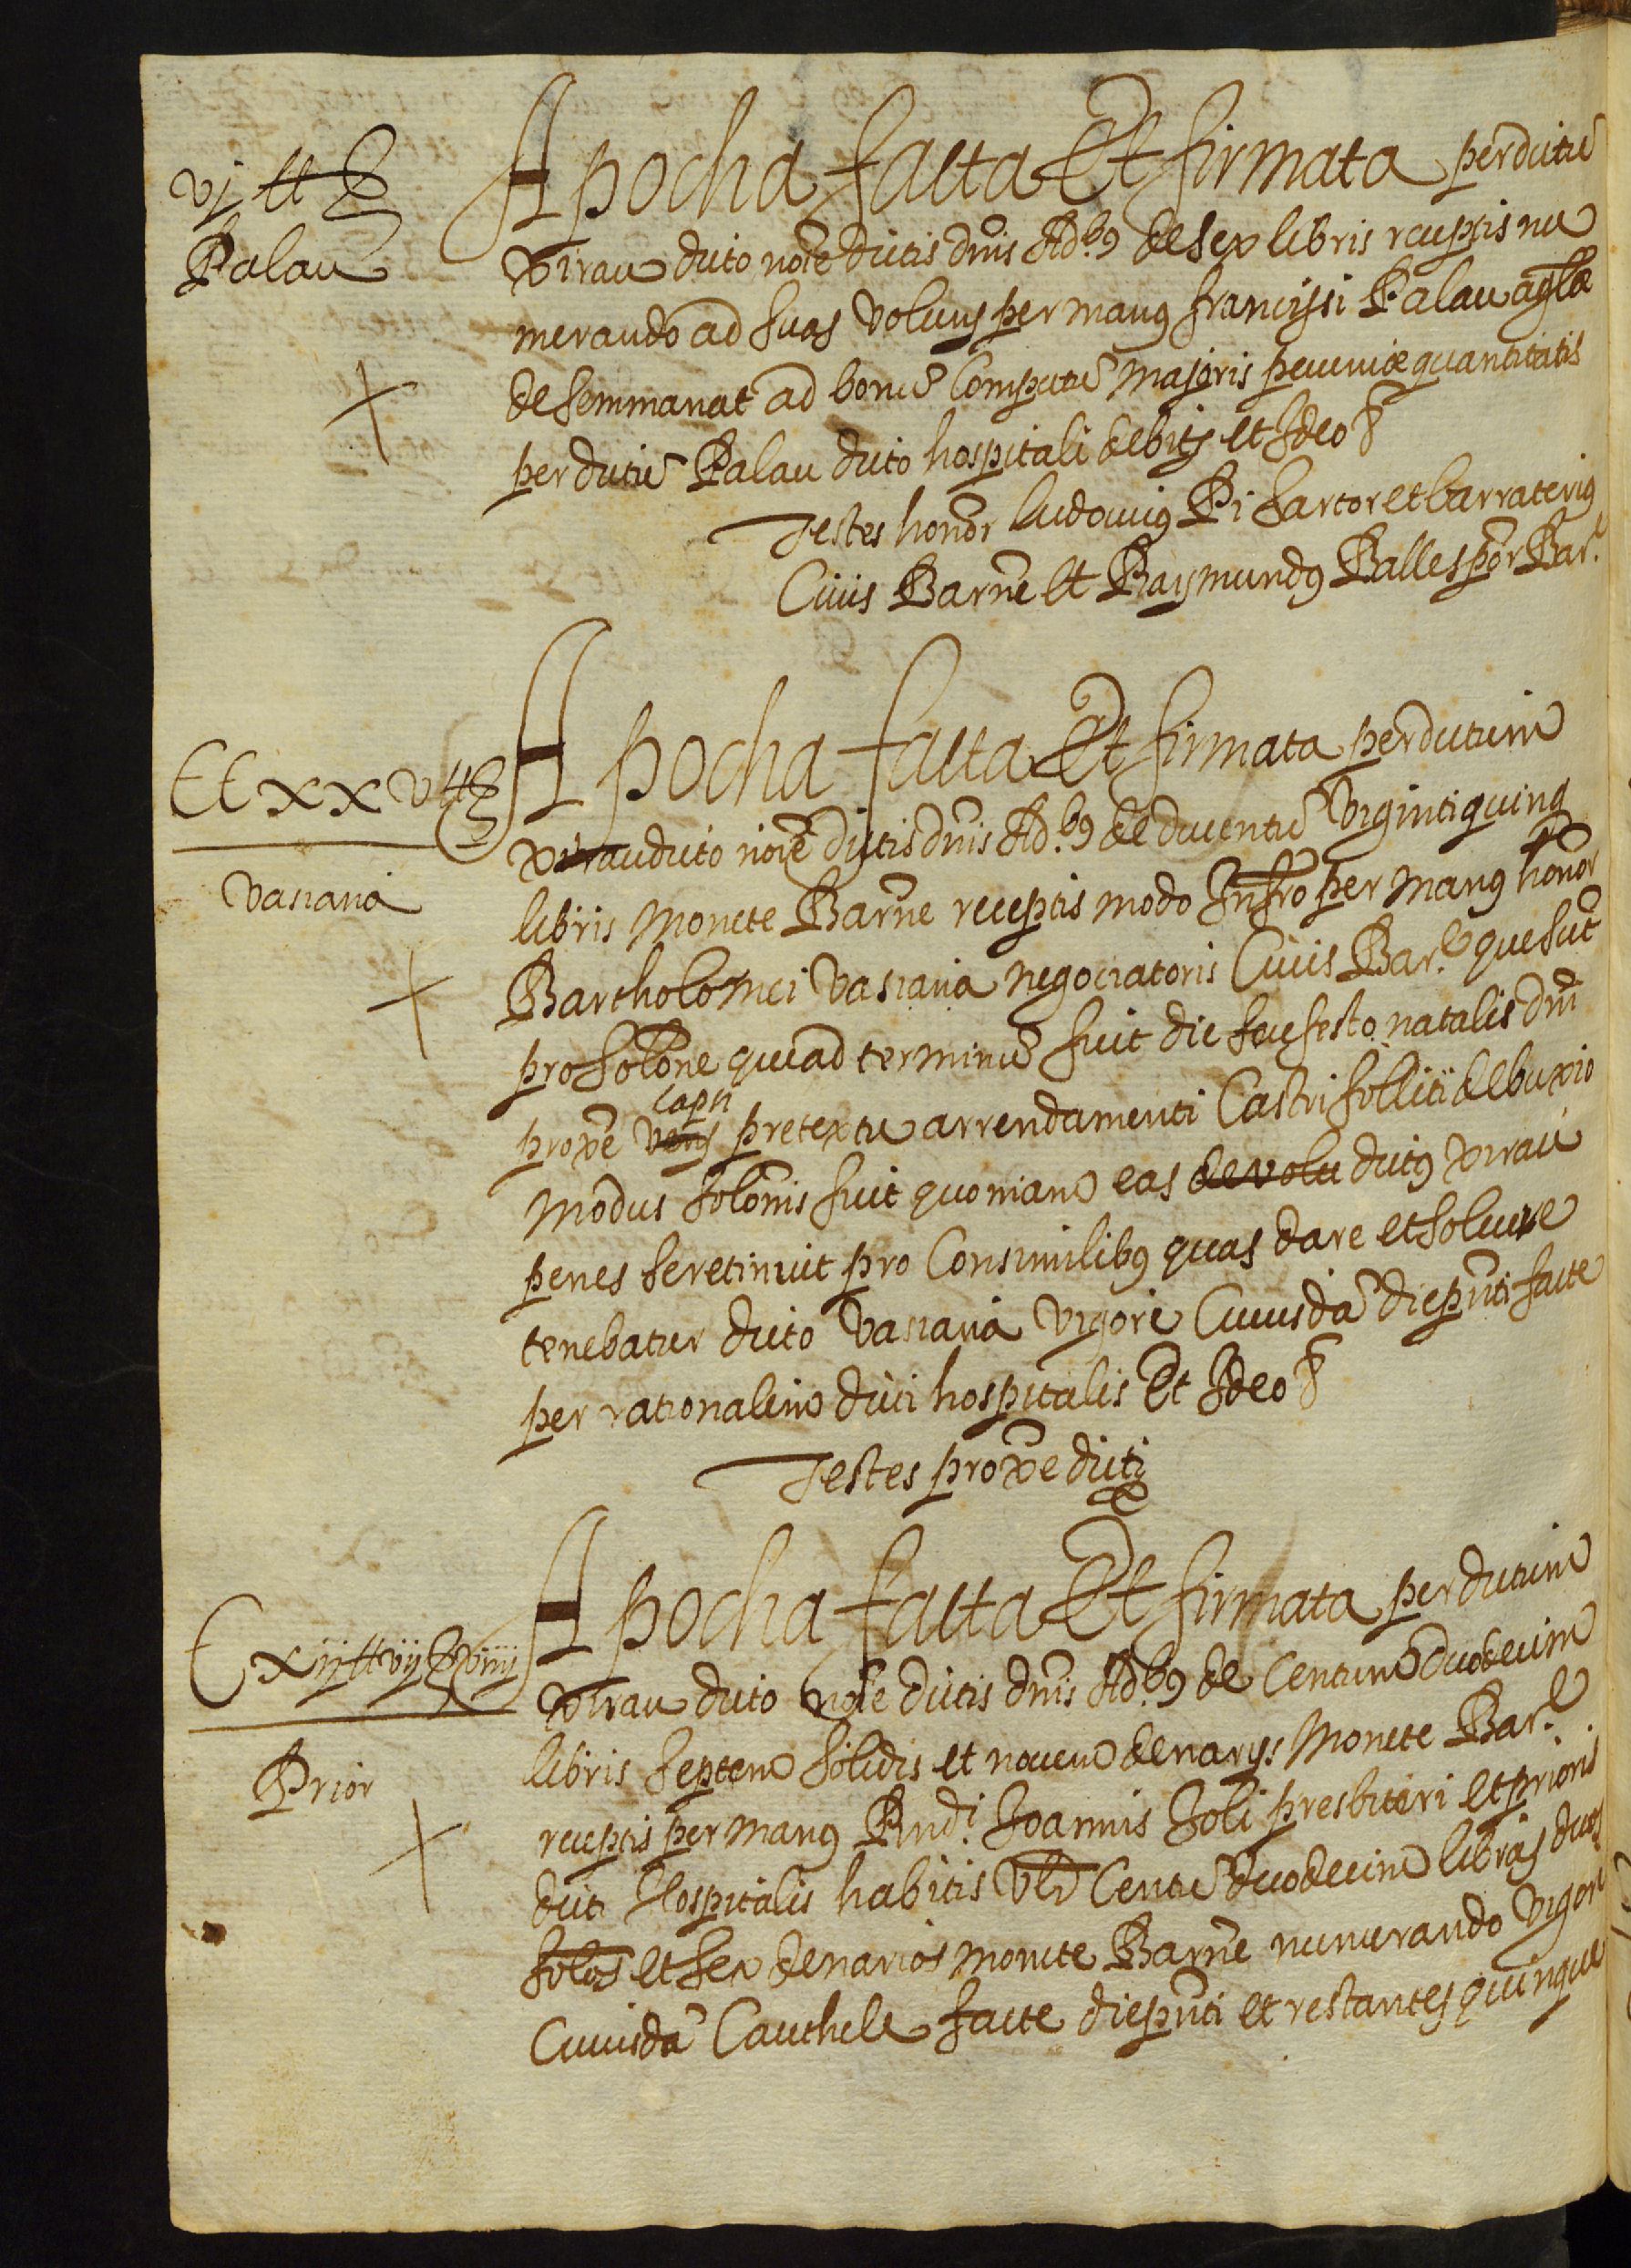 vj ℔ S
Palau
Apocha facta Et firmata per dictũ
Xirau dicto noĩe dictis dnĩs Ad.b9 de sex libris receptis nu
merando ad suas volun̄s per manus francisci Palau agl̃æ
de semmanat ad bonũ Computũ majoris pecuniæ quantitatis
per dictũ Palau dicto hospitali debitis et Ideo
Testes honor̃ Ludovicus Pi sartor et barraterius
Civis Barne͂ Et Raymundus Balles por̃ Bar.e
CC xx v ℔ S
Vasiana
Apocha facta Et firmata per dictum
Xirau dicto noĩe dictis dnĩs Ad.b9 de ducentũ Viginti quinq
libris Monete Barne͂ receptis modo Infr̃o per manus honor̃
Bartholomei Vasiana negociatoris Civis Bar.e que sũt
pro solõne qui ad terminũ fuit die seu festo natalis dnĩ
capti
prox̃e vens pretextu arrendamenti Castri folliti de buxio
Modus solõnis fuit quoniam eas de volu dictus Xirau
penes se retinuit pro Consimilibus quas dare et solvere
tenebatur dicto Vasiana Vigore Cuiusdã die pñti facte
per rationalem dicti hospitalis Et Ideo
Testes prox̃e dicti
C xij ℔ vij S viiij
Prior
Apocha facta Et firmata per dictum
Xirau dicto noĩe dictis dnĩs Ad.b9 de Centum duodecim
libris septem solidis et novem denarys Monete Bar.e
receptis per manus Rnd.i Joannis Joli presbiteri et prioris
dicti Hospitalis habitis Vlr̃ Centũ duodecim libras duos
solos et sex denarios monete Barne͂ numerando vigore
Cuiusdã Cauthele facte die pñti et restantes quinque